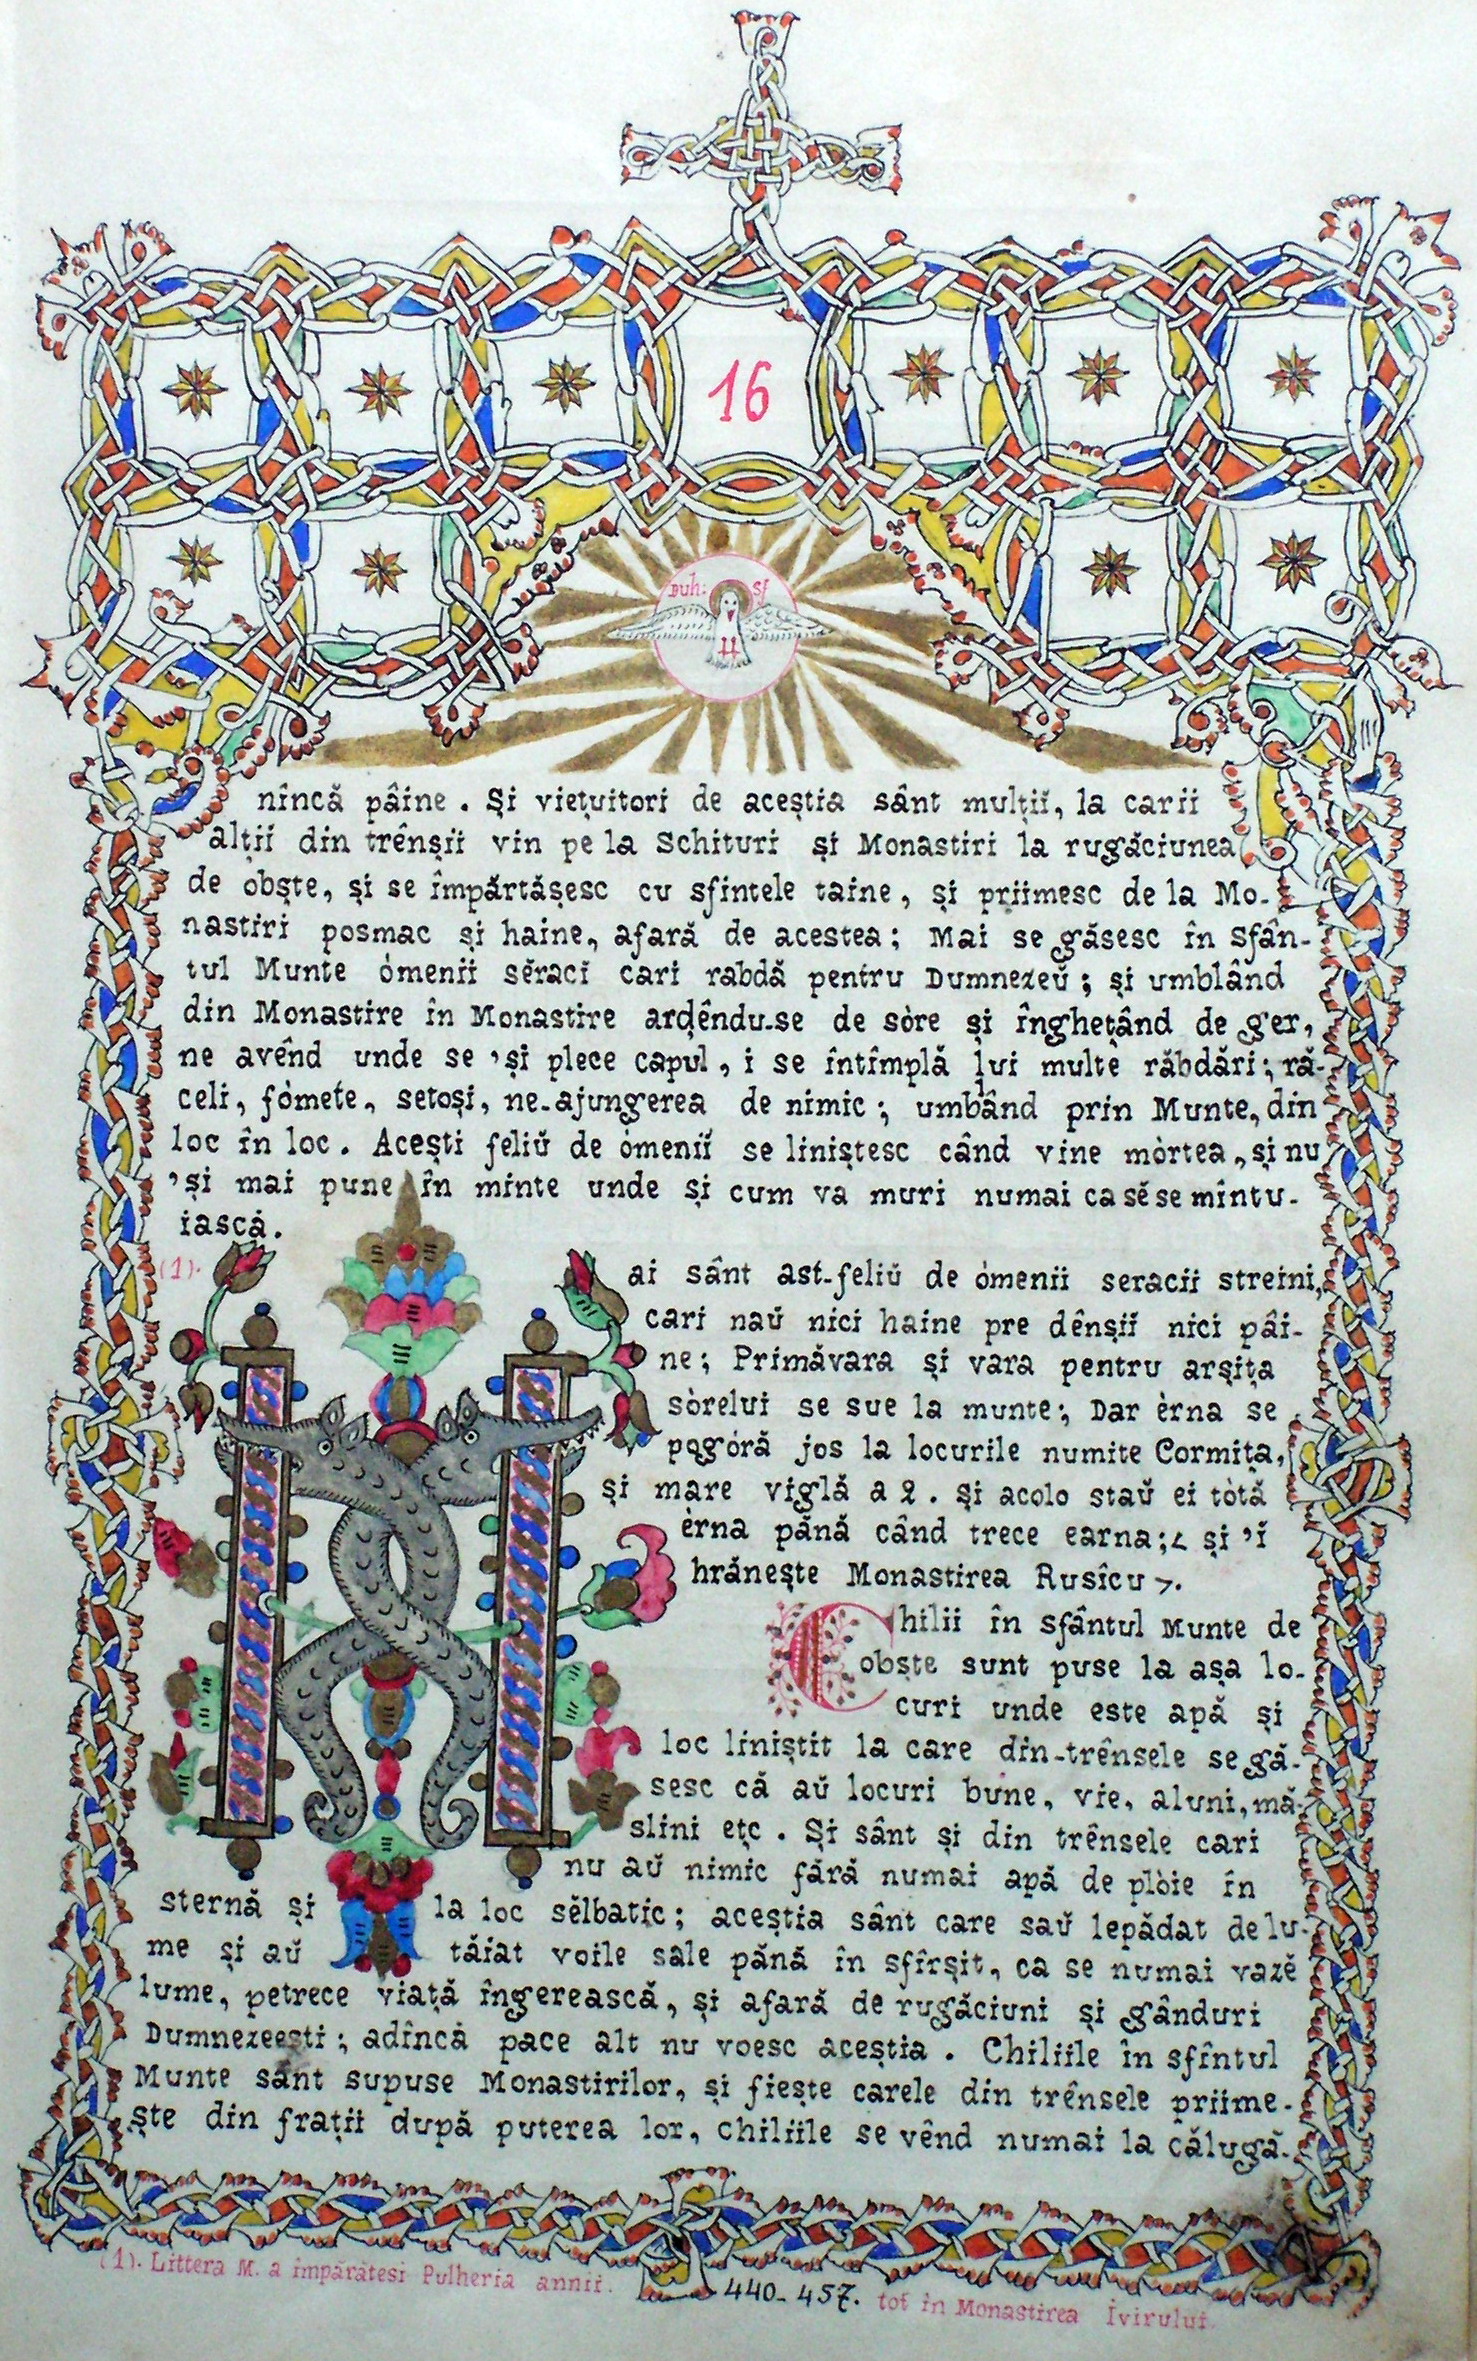 16
Duh: Sf
nîncă pâine. Și viețuitori de aceștia sânt mulțiĭ, la carii
alțiĭ din trênșii vin pe la Schituri și Monastiri la rugăciunea
de obște, și se împărtășesc cu sfintele taine, și priimesc de la Mo-
nastiri posmac și haine, afară de acestea; Mai se găsesc în Sfân-
tul Munte ómenii sĕraci cari rabdă pentru Dumnezeŭ; și umblând
din Monastire în Monastire arḑêndu-se de sòre și înghețând de ger,
ne avênd unde se 'și plece capul, i se întîmplă lui multe răbdări; ră-
celi, fòmete, setoși, ne-ajungerea de nimic; umblând prin Munte, din
loc în loc. Acești feliŭ de ómenií se liniștesc când vine mòrtea, și nu
'și mai pune în minte unde și cum va muri numai ca sĕ se mîntu-
iască.
(1).
Mai sânt ast-feliŭ de ómenii seracii streini,
cari naŭ nici haine pre dênșiĭ nici pâi-
ne; Primăvara și vara pentru arșița
sòrelui se sue la munte; Dar èrna se
pogóră jos la locurile numite Cormița,
și mare viglă a 2. Și acolo staŭ ei tòtă
erna pănă când trece earna; < și 'ĭ
hrănește Monastirea Rusîcu >.
Chilii în Sfântul Munte de
obște sunt puse la așa lo-
curi unde este apă și
loc liniștit la care din-trênsele se gă-
sesc că aŭ locuri bune, vie, aluni, mă-
slini ețc. Și sânt și din trênsele cari
nu aŭ nimic fără numai apă de plòie în
sternă și la loc sĕlbatic; aceștia sânt care saŭ lepădat de lu-
me și aŭ tăiat voile sale pănă în sfîrșit, ca se numai vazĕ
lume, petrece viață îngerească, și afară de rugăciuni și gânduri
Dumnezeești; adîncă pace alt nu voesc aceștia. Chiliile în sfîntul
Munte sânt supuse Monastirilor, și fiește carele din trênsele priime-
ște din frații după puterea lor, chiliile se vênd numai la călugă-
(1). Littera M. a împărătesi Pulheria annii. 440-457. tot în Monastirea Ivirului.